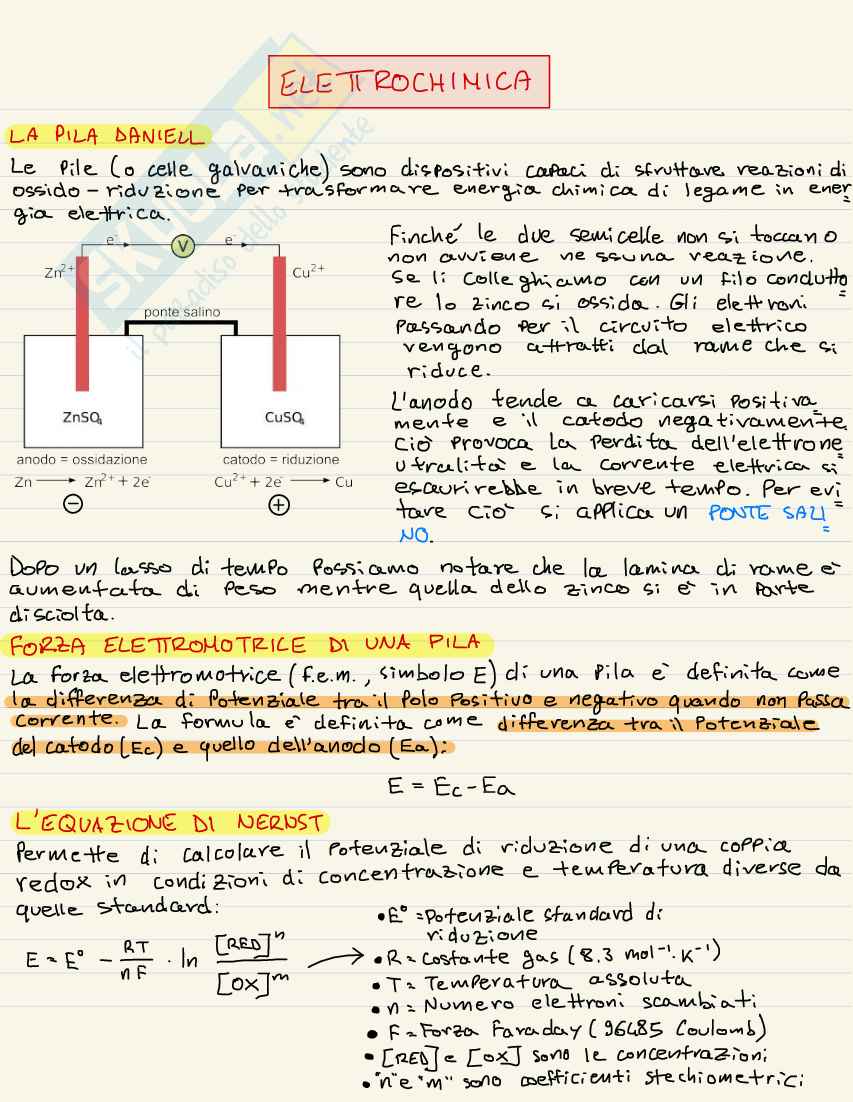 ELETTROCHIMICA
LA PILA DANIELL
Le Pile (o celle galvaniche) sono dispositivi capaci di sfruttare reazioni di
ossido-riduzione per trasformare energia chimica di legame in ener
gia elettrica.
e⁻ V e⁻
Zn²⁺ Cu²⁺
ponte salino
ZnSO₄ CuSO₄
anodo = ossidazione catodo = riduzione
Zn → Zn²⁺ + 2e⁻ Cu²⁺ + 2e⁻ → Cu
⊖ ⊕
Finché le due semicelle non si toccano
non avviene nessuna reazione.
Se li colleghiamo con un filo condutto
re lo zinco si ossida. Gli elettroni
passando per il circuito elettrico
vengono attratti dal rame che si
riduce.
L'anodo tende a caricarsi positiva
mente e il catodo negativamente.
Ciò provoca la perdita dell'elettrone
utralità e la corrente elettrica si
esaurirebbe in breve tempo. Per evi
tare ciò si applica un PONTE SALI
NO.
Dopo un lasso di tempo possiamo notare che la lamina di rame è
aumentata di peso mentre quella dello zinco si è in parte
disciolta.
FORZA ELETTROMOTRICE DI UNA PILA
La forza elettromotrice (f.e.m., simbolo E) di una pila è definita come
la differenza di potenziale tra il polo positivo e negativo quando non passa
corrente. La formula è definita come differenza tra il potenziale
del catodo (Ec) e quello dell'anodo (Ea):
E = Ec - Ea
L'EQUAZIONE DI NERNST
Permette di calcolare il potenziale di riduzione di una coppia
redox in condizioni di concentrazione e temperatura diverse da
quelle standard:
E = E° - RT/nF · ln [RED]ⁿ/[OX]ᵐ →
• E° = Potenziale standard di
riduzione
• R = Costante gas (8.3 mol⁻¹·K⁻¹)
• T = Temperatura assoluta
• n = Numero elettroni scambiati
• F = Forza Faraday (96485 Coulomb)
• [RED] e [OX] sono le concentrazioni
• "n" e "m" sono coefficienti stechiometrici
SKUOLA.net
il paradiso dello studente